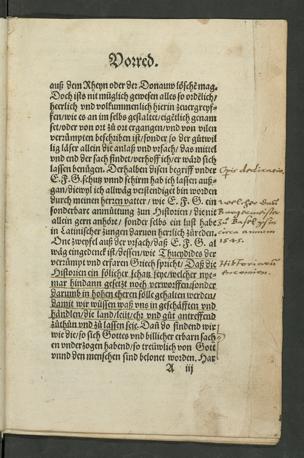 Vorred.
auß dem Rheyn oder der Donauw löscht mag.
Doch ists nit müglich gewesen alles so ordelich/
heerlich vnd volkummenlich hierin zeuergreyf-
fen/wie es an im selbs gestaltet/eigetlich genam
set/oder von ort zu ort ergangen/vnd von vilen
verrümpten beschriben ist/sonder so der gütwil
lig läser allein die anlaß vnd vrsach/das mittel
vnd end der sach findet/verhoff ich/er wärd sich
lassen benügen. Derhalben disen begriff vnder
E. F. G. schutz vnnd schirm hab ich lassen auß-
gan/diewyl ich allwäg verstendiget bin worden
durch meinen herren vatter/wie E. F. G. ein
sonderbare anmütung zum Historien/die nit
allein gern anhört/sonder selbs ein lust habe
in Latinischer zungen daruon herrlich zureden.
One zweyfel auß der vrsach/daß E. F. G. al
wäg eingedenck ist/dessen/wie Thucydides der
verrümpt vnd erfaren Griech spricht/Daß die
Historien ein sölicher schatz seye/welcher nye-
mar hindann gesetzt noch verworffen/sonder
darumb in hohen eheren sölle gehalten werden/
damit wir wüssen was uns in geschäfften vnd
händlen/die land/leüt/ehr vnd güt antreffend
zuthün vnd zu lassen seie. Daß do findend wir
wie die/so sich Gottes vnd billicher erbarn sach-
en vnderzogen habend/so treüwlich von Gott
vnnd den menschen sind belonet worden. Har
A iij
Historiarum
1545.